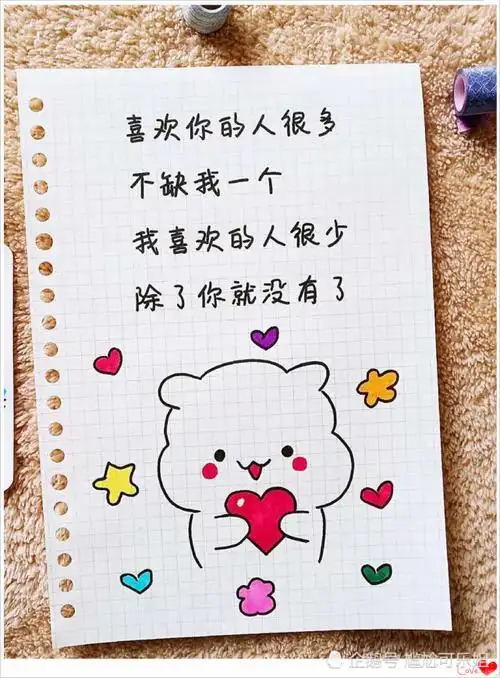 喜欢你的人很多
不缺我一个
我喜欢的人很少
除了你就没有了
企鹅号 尴尬可乐姐
Love